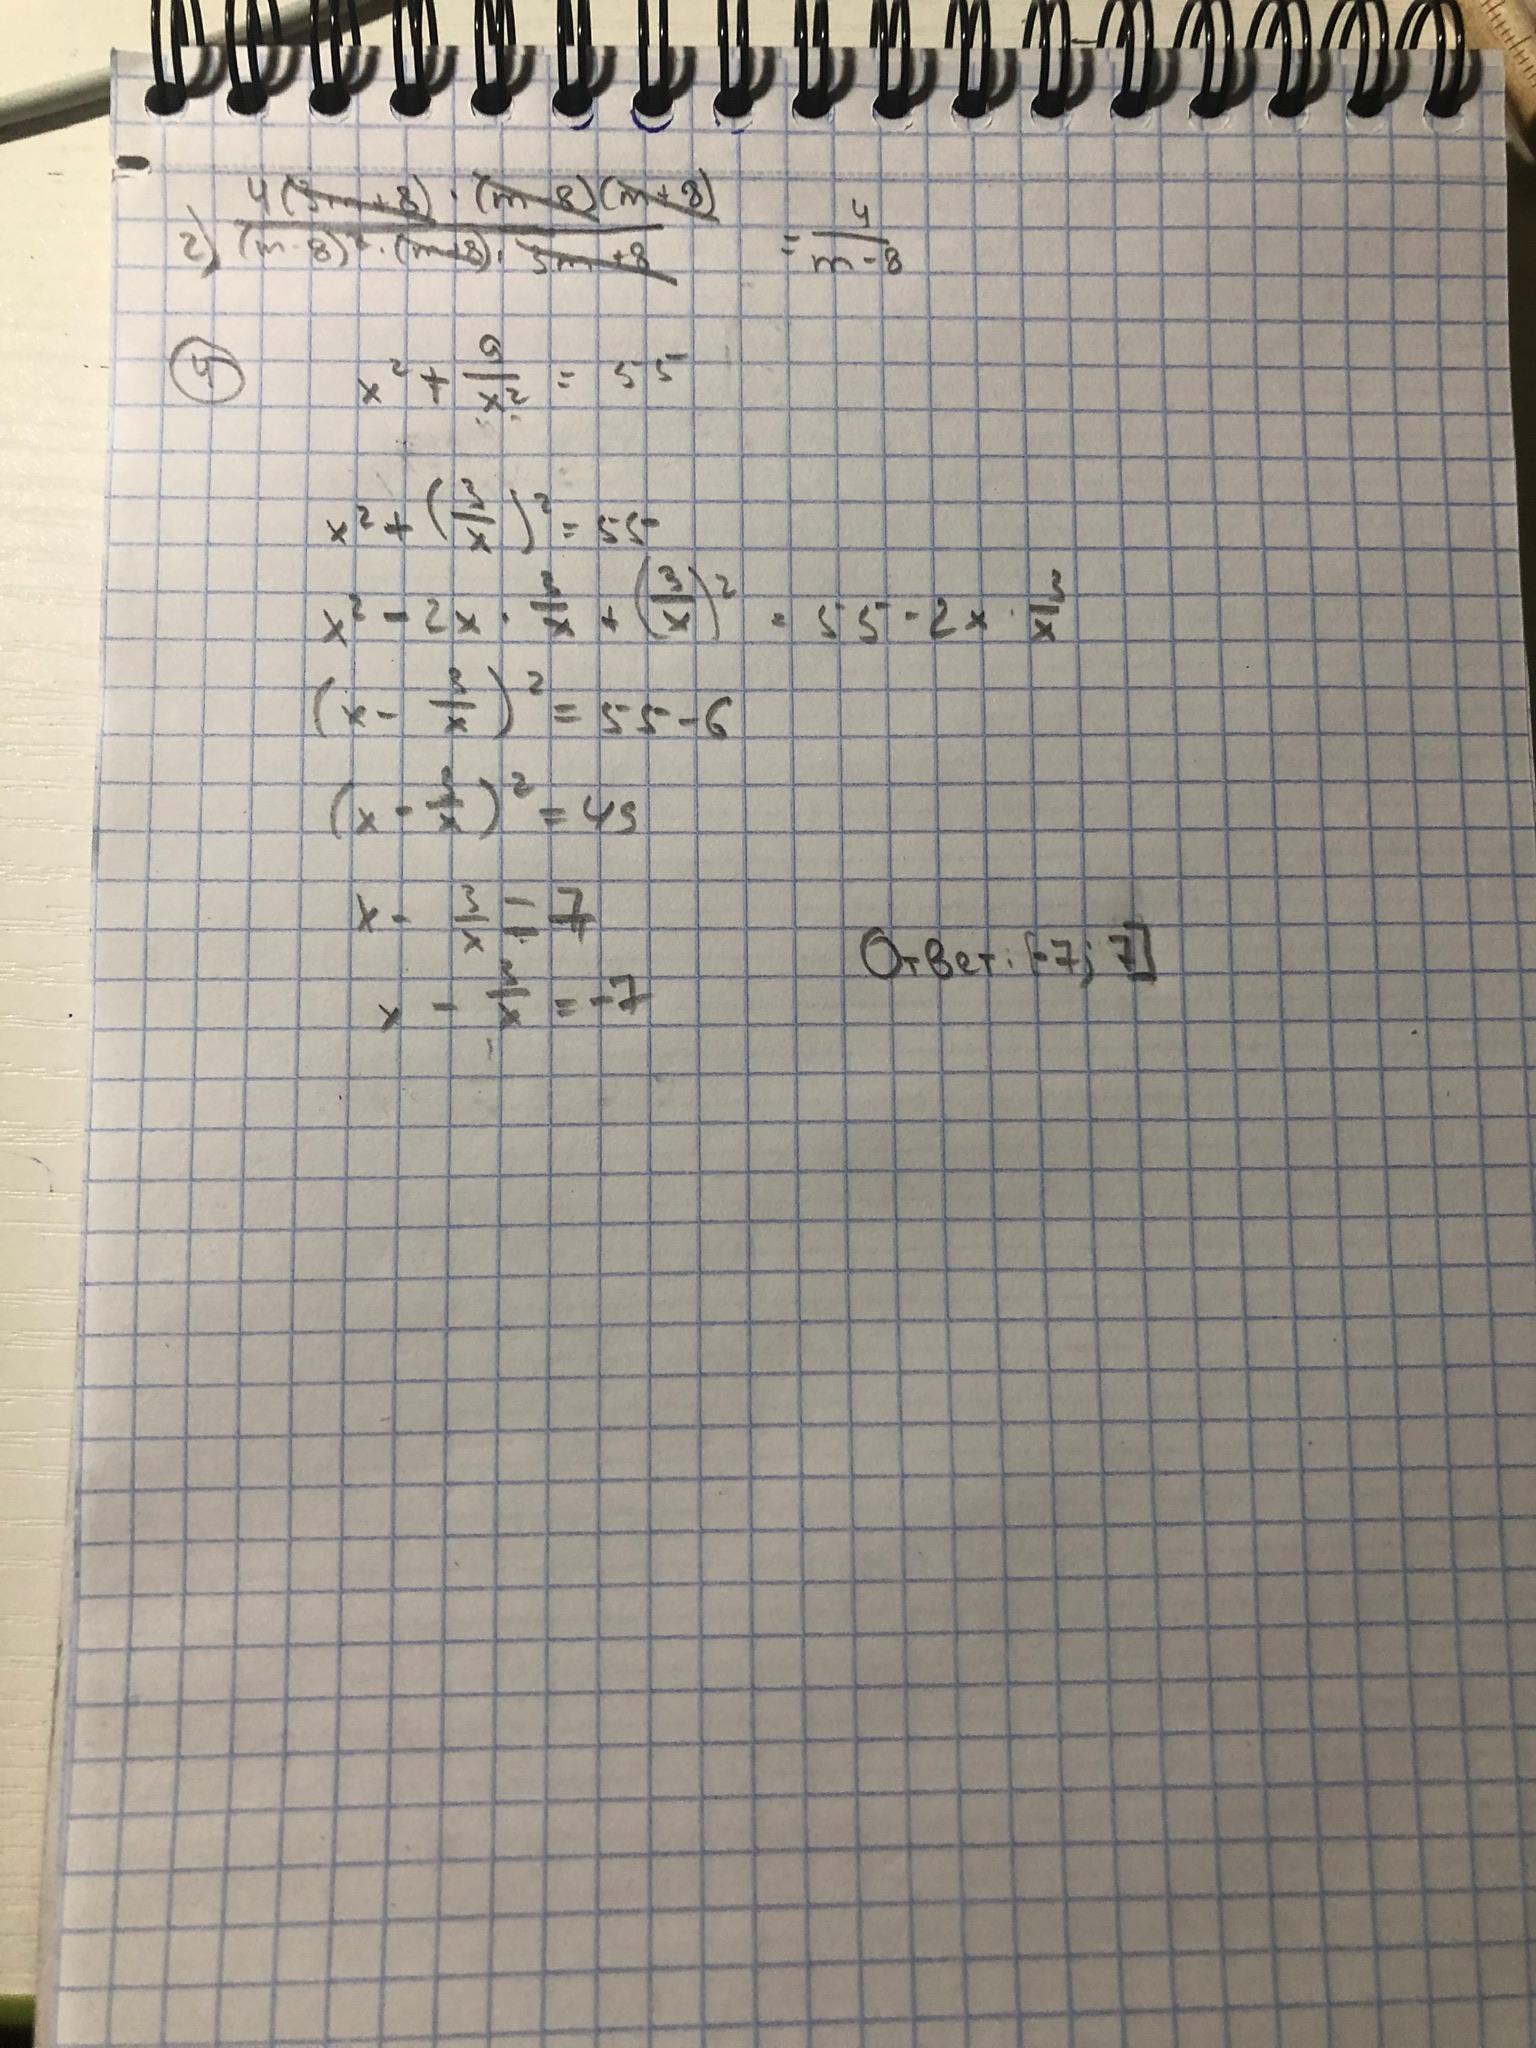 2) 4(3m+8)·(m-8)(m+8) / (m-8)²·(m+8)·3m+8 = 4/(m-8)
④ x² + 9/x² = 55
x² + (3/x)² = 55
x² - 2x · 3/x + (3/x)² = 55 - 2x · 3/x
(x - 3/x)² = 55 - 6
(x - 3/x)² = 49
x - 3/x = 7
x - 3/x = -7
Ответ: [-7; 7]